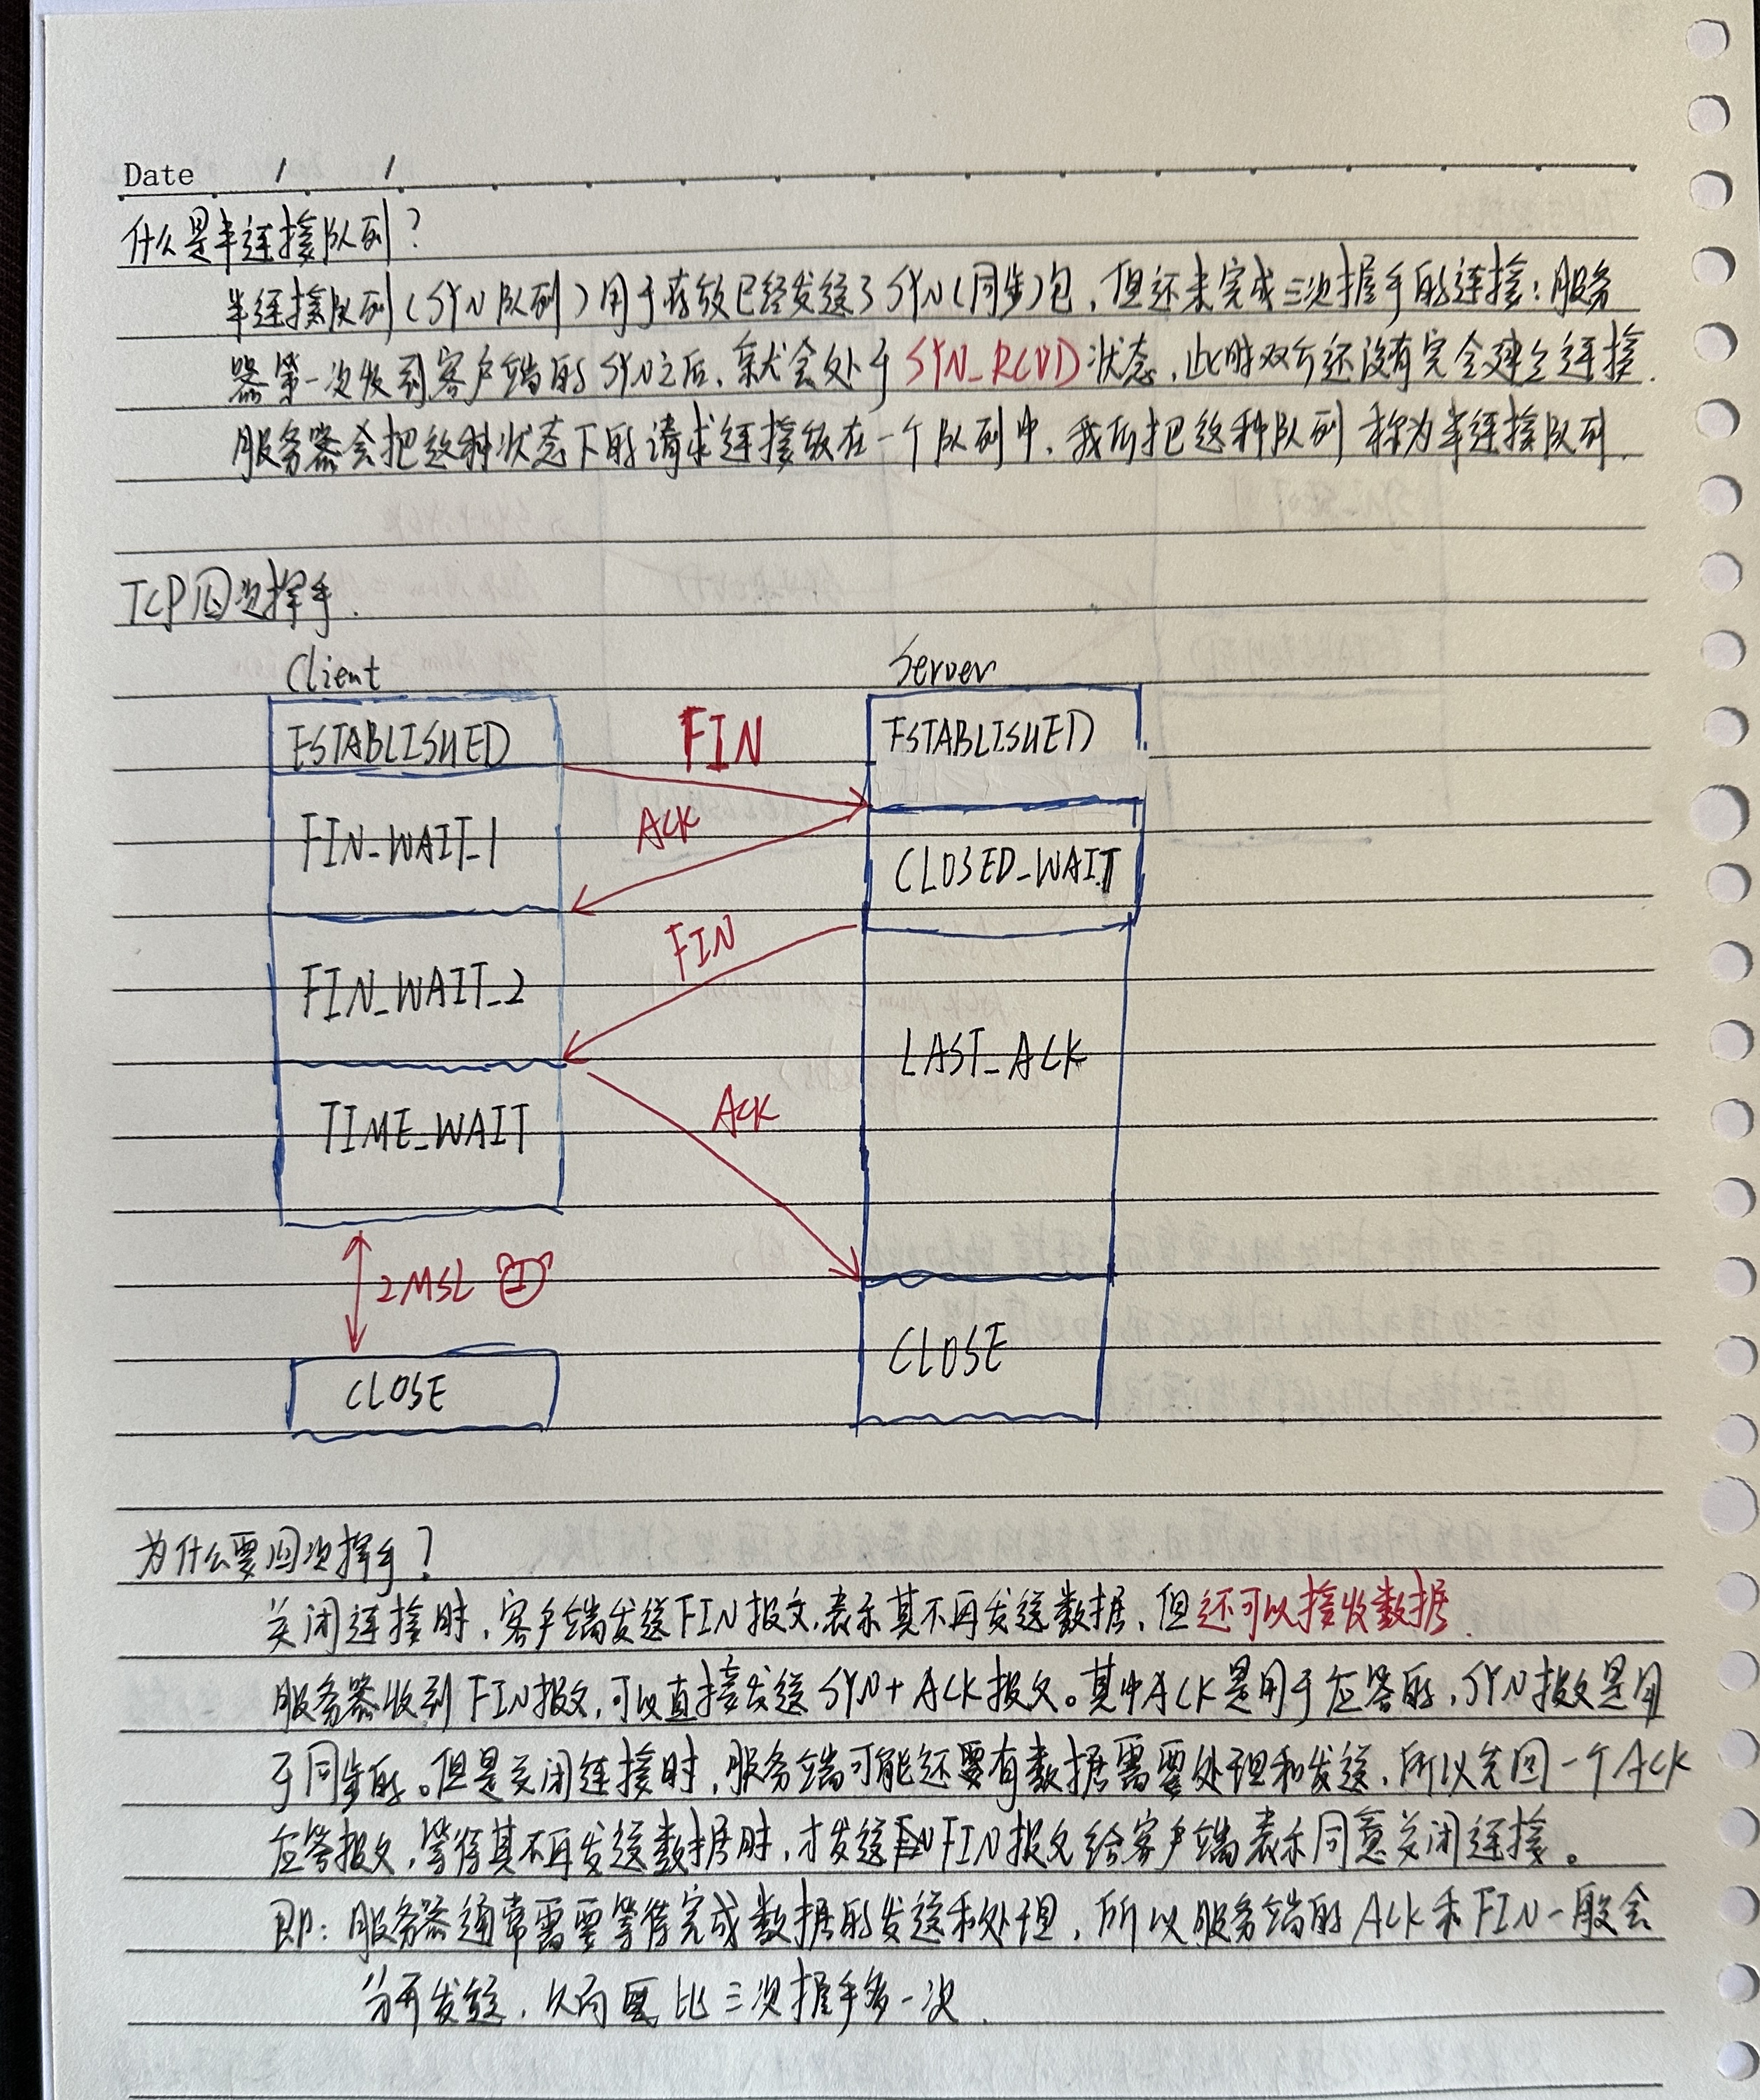 Date / /
什么是半连接队列?
半连接队列(SYN队列)用于存放已经发送了SYN(同步)包,但还未完成三次握手的连接:服务
器第一次收到客户端的SYN之后,就会处于SYN_RCVD状态,此时双方还没有完全建立连接.
服务器会把这种状态下的请求连接放在一个队列中,我们把这种队列称为半连接队列.
TCP四次挥手.
Client
Server
ESTABLISHED
FIN
ESTABLISHED
FIN_WAIT_1
ACK
CLOSED_WAIT
FIN
FIN_WAIT_2
LAST_ACK
ACK
TIME_WAIT
2MSL
CLOSE
CLOSE
为什么要四次挥手?
关闭连接时,客户端发送FIN报文,表示其不再发送数据,但还可以接收数据.
服务器收到FIN报文,可以直接发送SYN+ACK报文。其中ACK是用于应答的,SYN报文是用
于同步的。但是关闭连接时,服务端可能还要有数据需要处理和发送,所以先回一个ACK
应答报文,等待其不再发送数据时,才发送FIN报文给客户端表示同意关闭连接。
即:服务器通常需要等待完成数据的发送和处理,所以服务端的ACK和FIN一般会
分开发送,从而比三次握手多一次.